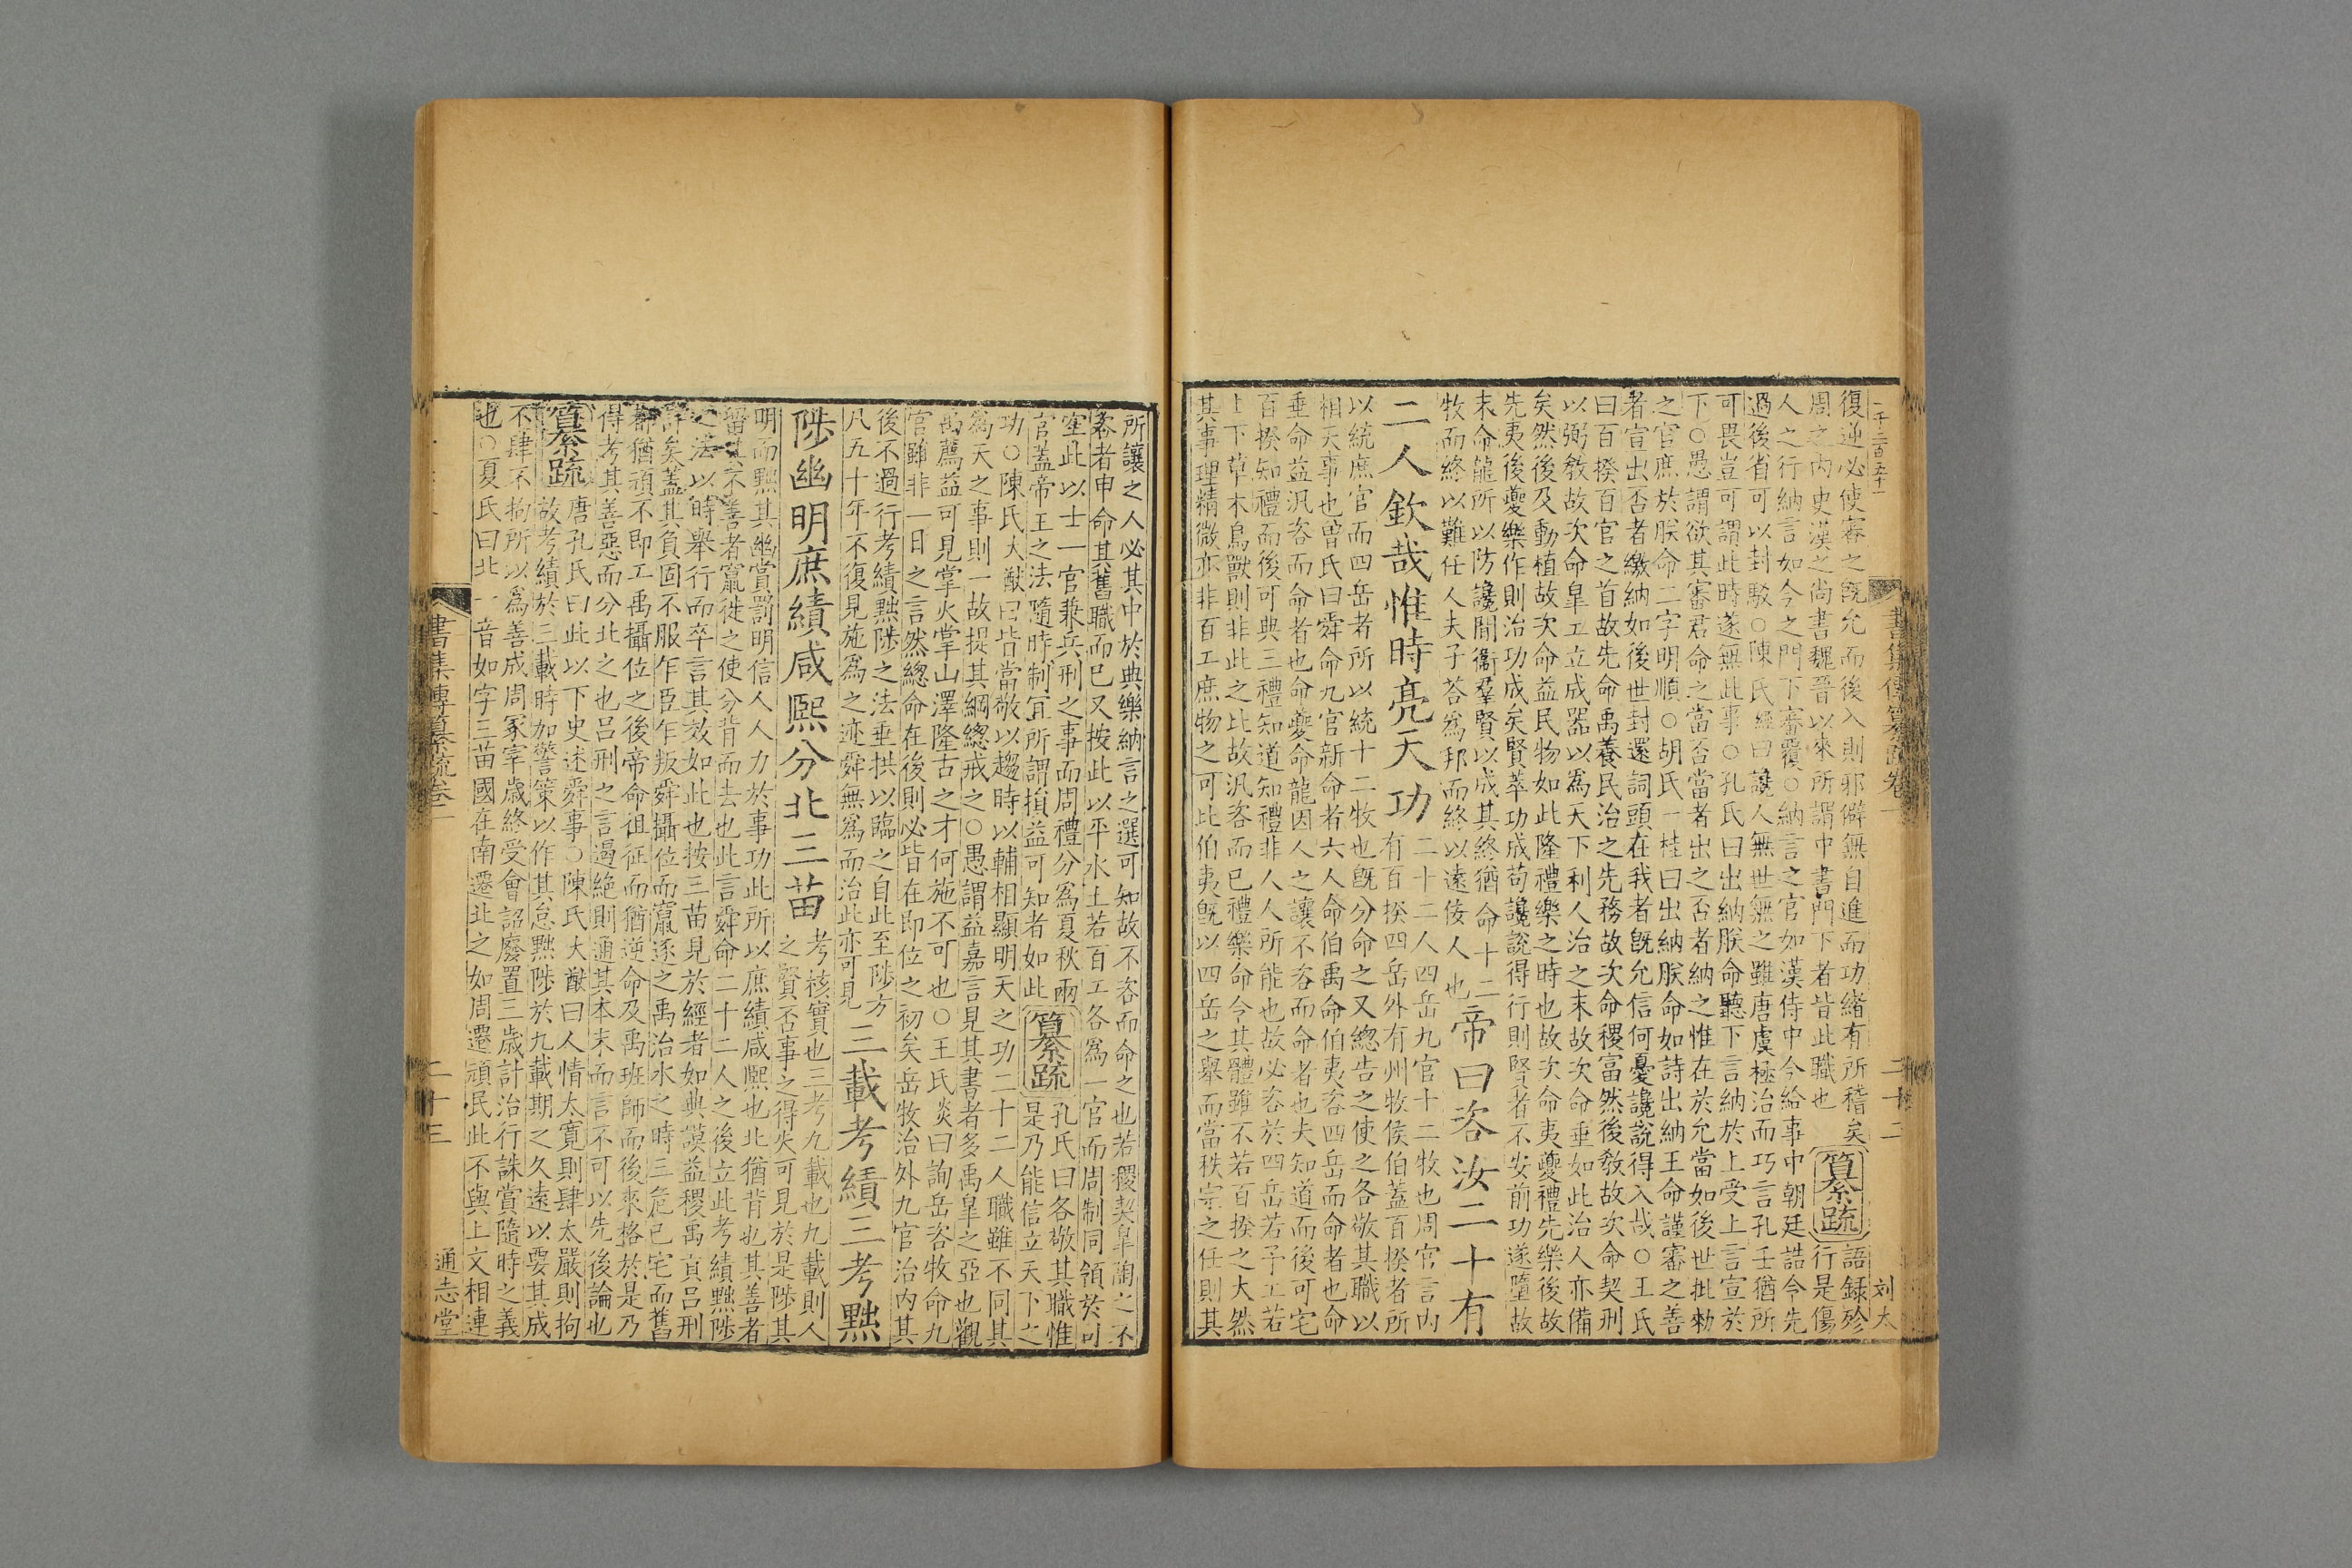 二千二百五十一
書集傳纂疏卷一
二十二
刘太
復逆必使審之旣允而後入則邪僻無自進而功緒有所稽矣纂疏語録殄
周之內史漢之尚書魏晉以來所謂中書門下者皆此職也 行是傷
人之行納言如今之門下審覆○納言之官如漢侍中今給事中朝廷誥令先
過後省可以封駁○陳氏經曰讒人無世無之雖唐虞極治而巧言孔壬猶所
可畏豈可謂此時遂無此事○孔氏曰出納朕命聽下言納於上受上言宣於
下○愚謂欲其審君命之當否當者出之否者納之惟在於允當如後世批勑
之官庶於朕命二字明順○胡氏一桂曰出納朕命如詩出納王命謹審之善
者宣出否者繳納如後世封還詞頭在我者旣允信何憂讒說得入哉○王氏
曰百揆百官之首故先命禹養民治之先務故次命稷富然後敎故次命契刑
以弼敎故次命臯工立成器以爲天下利人治之末故次命垂如此治人亦備
矣然後及動植故次命益民物如此隆禮樂之時也故次命夷夔禮先樂後故
先夷後夔樂作則治功成矣賢萃功成苟讒說得行則賢者不安前功遂墮故
末命龍所以防讒間衞羣賢以成其終猶命十二
牧而終以難任人夫子荅爲邦而終以遠佞人也
帝曰咨汝二十有
二人欽哉惟時亮天功
二十二人四岳九官十二牧也周官言內
有百揆四岳外有州牧侯伯蓋百揆者所
以統庶官而四岳者所以統十二牧也旣分命之又總告之使之各敬其職以
相天事也曾氏曰舜命九官新命者六人命伯禹命伯夷咨四岳而命者也命
垂命益汎咨而命者也命夔命龍因人之讓不咨而命者也夫知道而後可宅
百揆知禮而後可典三禮知道知禮非人人所能也故必咨於四岳若予工若
上下草木鳥獸則非此之比故汎咨而已禮樂命令其體雖不若百揆之大然
其事理精微亦非百工庶物之可比伯夷旣以四岳之舉而當秩宗之任則其
所讓之人必其中於典樂納言之選可知故不咨而命之也若稷契臯陶之不
咨者申命其舊職而已又按此以平水土若百工各爲一官而周制同領於司
空此以士一官兼兵刑之事而周禮分爲夏秋兩
官蓋帝王之法隨時制宜所謂損益可知者如此
纂疏孔氏曰各敬其職惟
是乃能信立天下之
功○陳氏大猷曰皆當敬以趨時以輔相顯明天之功二十二人職雖不同其
爲天之事則一故提其綱總戒之○愚謂益嘉言見其書者多禹臯之亞也觀
禹薦益可見掌火掌山澤隆古之才何施不可也○王氏炎曰詢岳咨牧命九
官雖非一日之言然總命在後則必皆在即位之初矣岳牧治外九官治內其
後不過行考績黜陟之法垂拱以臨之自此至陟方
八五十年不復見施爲之迹舜無爲而治此亦可見
三載考績三考黜
陟幽明庶績咸熙分北三苗
考核實也三考九載也九載則人
之賢否事之得失可見於是陟其
明而黜其幽賞罰明信人人力於事功此所以庶績咸熙也北猶背也其善者
留其不善者竄徙之使分背而去也此言舜命二十二人之後立此考績黜陟
之法以時舉行而卒言其效如此也按三苗見於經者如典謨益稷禹貢呂刑
詳矣蓋其負固不服乍臣乍叛舜攝位而竄逐之禹治水之時三危已宅而舊
都猶頑不即工禹攝位之後帝命徂征而猶逆命及禹班師而後來格於是乃
得考其善惡而分北之也呂刑之言遏絶則通其本末而言不可以先後論也
纂疏唐孔氏曰此以下史述舜事○陳氏大猷曰人情太寬則肆太嚴則拘
故考績於三載時加警策以作其怠黜陟於九載期之久遠以要其成
不肆不拘所以爲善成周冢宰歲終受會詔廢置三歲計治行誅賞隨時之義
也○夏氏曰北一音如字三苗國在南遷北之如周遷頑民此不與上文相連
書集傳纂疏卷一
二十三
通志堂